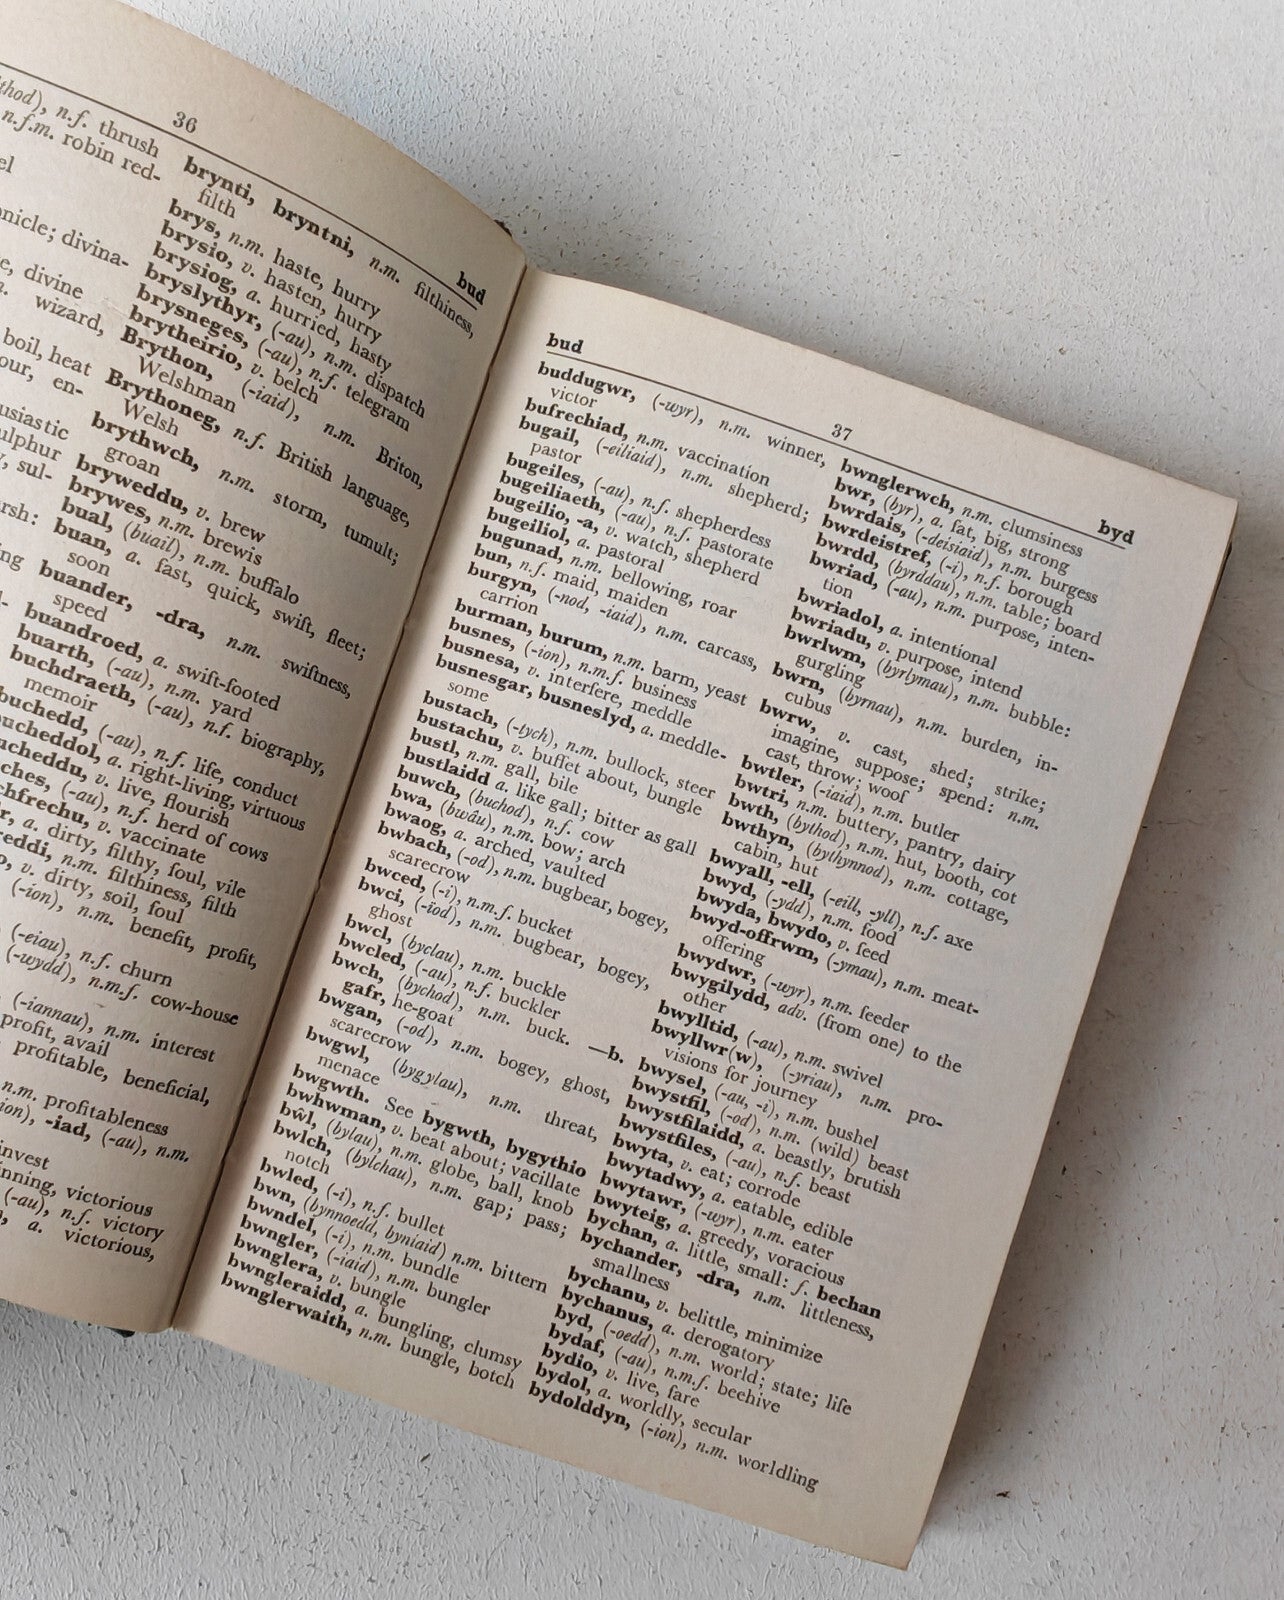 36
bud
thod), n.f. thrush
n.f.m. robin red-
el
nicle; divina-
e, divine
wizard,
boil, heat
our, en-
usiastic
ulphur
, sul-
rsh:
ing
brynti, bryntni, n.m. filthiness,
filth
brys, n.m. haste, hurry
brysio, v. hasten, hurry
brysiog, a. hurried, hasty
bryslythyr, (-au), n.m. dispatch
brysneges, (-au), n.f. telegram
brytheirio, v. belch
Brython, (-iaid), n.m. Briton,
Welshman
Brythoneg, n.f. British language,
Welsh
brythwch, n.m. storm, tumult;
groan
bryweddu, v. brew
brywes, n.m. brewis
bual, (buail), n.m. buffalo
buan, a. fast, quick, swift, fleet;
soon
buander, -dra, n.m. swiftness,
speed
buandroed, a. swift-footed
buarth, (-au), n.m. yard
buchdraeth, (-au), n.f. biography,
memoir
buchedd, (-au), n.f. life, conduct
bucheddol, a. right-living, virtuous
ucheddu, v. live, flourish
ches, (-au), n.f. herd of cows
chfrechu, v. vaccinate
r, a. dirty, filthy, foul, vile
reddi, n.m. filthiness, filth
o, v. dirty, soil, foul
(-ion), n.m. benefit, profit,
(-eiau), n.f. churn
(-wydd), n.m.f. cow-house
(-iannau), n.m. interest
profit, avail
profitable, beneficial,
n.m. profitableness
ion), -iad, (-au), n.m.
nvest
nning, victorious
(-au), n.f. victory
a. victorious,
bud
37
byd
buddugwr, (-wyr), n.m. winner,
victor
bufrechiad, n.m. vaccination
bugail, (-eiliaid), n.m. shepherd;
pastor
bugeiles, (-au), n.f. shepherdess
bugeiliaeth, (-au), n.f. pastorate
bugeilio, -a, v. watch, shepherd
bugeiliol, a. pastoral
bugunad, n.m. bellowing, roar
bun, n.f. maid, maiden
burgyn, (-nod, -iaid), n.m. carcass,
carrion
burman, burum, n.m. barm, yeast
busnes, (-ion), n.m.f. business
busnesa, v. interfere, meddle
busnesgar, busneslyd, a. meddle-
some
bustach, (-tych), n.m. bullock, steer
bustachu, v. buffet about, bungle
bustl, n.m. gall, bile
bustlaidd a. like gall; bitter as gall
buwch, (buchod), n.f. cow
bwa, (bwâu), n.m. bow; arch
bwaog, a. arched, vaulted
bwbach, (-od), n.m. bugbear, bogey,
scarecrow
bwced, (-i), n.m.f. bucket
bwci, (-ïod), n.m. bugbear, bogey,
ghost
bwcl, (byclau), n.m. buckle
bwcled, (-au), n.f. buckler
bwch, (bychod), n.m. buck. —b.
gafr, he-goat
bwgan, (-od), n.m. bogey, ghost,
scarecrow
bwgwl, (bygylau), n.m. threat,
menace
bwgwth. See bygwth, bygythio
bwhwman, v. beat about; vacillate
bŵl, (bylau), n.m. globe, ball, knob
bwlch, (bylchau), n.m. gap; pass;
notch
bwled, (-i), n.f. bullet
bwn, (bynnoedd, byniaid) n.m. bittern
bwndel, (-i), n.m. bundle
bwngler, (-iaid), n.m. bungler
bwnglera, v. bungle
bwngleraidd, a. bungling, clumsy
bwnglerwaith, n.m. bungle, botch
bwnglerwch, n.m. clumsiness
bwr, (byr), a. fat, big, strong
bwrdais, (-deisiaid), n.m. burgess
bwrdeistref, (-i), n.f. borough
bwrdd, (byrddau), n.m. table; board
bwriad, (-au), n.m. purpose, inten-
tion
bwriadol, a. intentional
bwriadu, v. purpose, intend
bwrlwm, (byrlymau), n.m. bubble:
gurgling
bwrn, (byrnau), n.m. burden, in-
cubus
bwrw, v. cast, shed; strike;
imagine, suppose; spend: n.m.
cast, throw; woof
bwtler, (-iaid), n.m. butler
bwtri, n.m. buttery, pantry, dairy
bwth, (bythod), n.m. hut, booth, cot
bwthyn, (bythynnod), n.m. cottage,
cabin, hut
bwyall, -ell, (-eill, -yll), n.f. axe
bwyd, (-ydd), n.m. food
bwyda, bwydo, v. feed
bwyd-offrwm, (-ymau), n.m. meat-
offering
bwydwr, (-wyr), n.m. feeder
bwygilydd, adv. (from one) to the
other
bwylltid, (-au), n.m. swivel
bwyllwr(w), (-yriau), n.m. pro-
visions for journey
bwysel, (-au, -i), n.m. bushel
bwystfil, (-od), n.m. (wild) beast
bwystfilaidd, a. beastly, brutish
bwystfiles, (-au), n.f. beast
bwyta, v. eat; corrode
bwytadwy, a. eatable, edible
bwytawr, (-wyr), n.m. eater
bwyteig, a. greedy, voracious
bychan, a. little, small: f. bechan
bychander, -dra, n.m. littleness,
smallness
bychanu, v. belittle, minimize
bychanus, a. derogatory
byd, (-oedd), n.m. world; state; life
bydaf, (-au), n.m.f. beehive
bydio, v. live, fare
bydol, a. worldly, secular
bydolddyn, (-ion), n.m. worldling